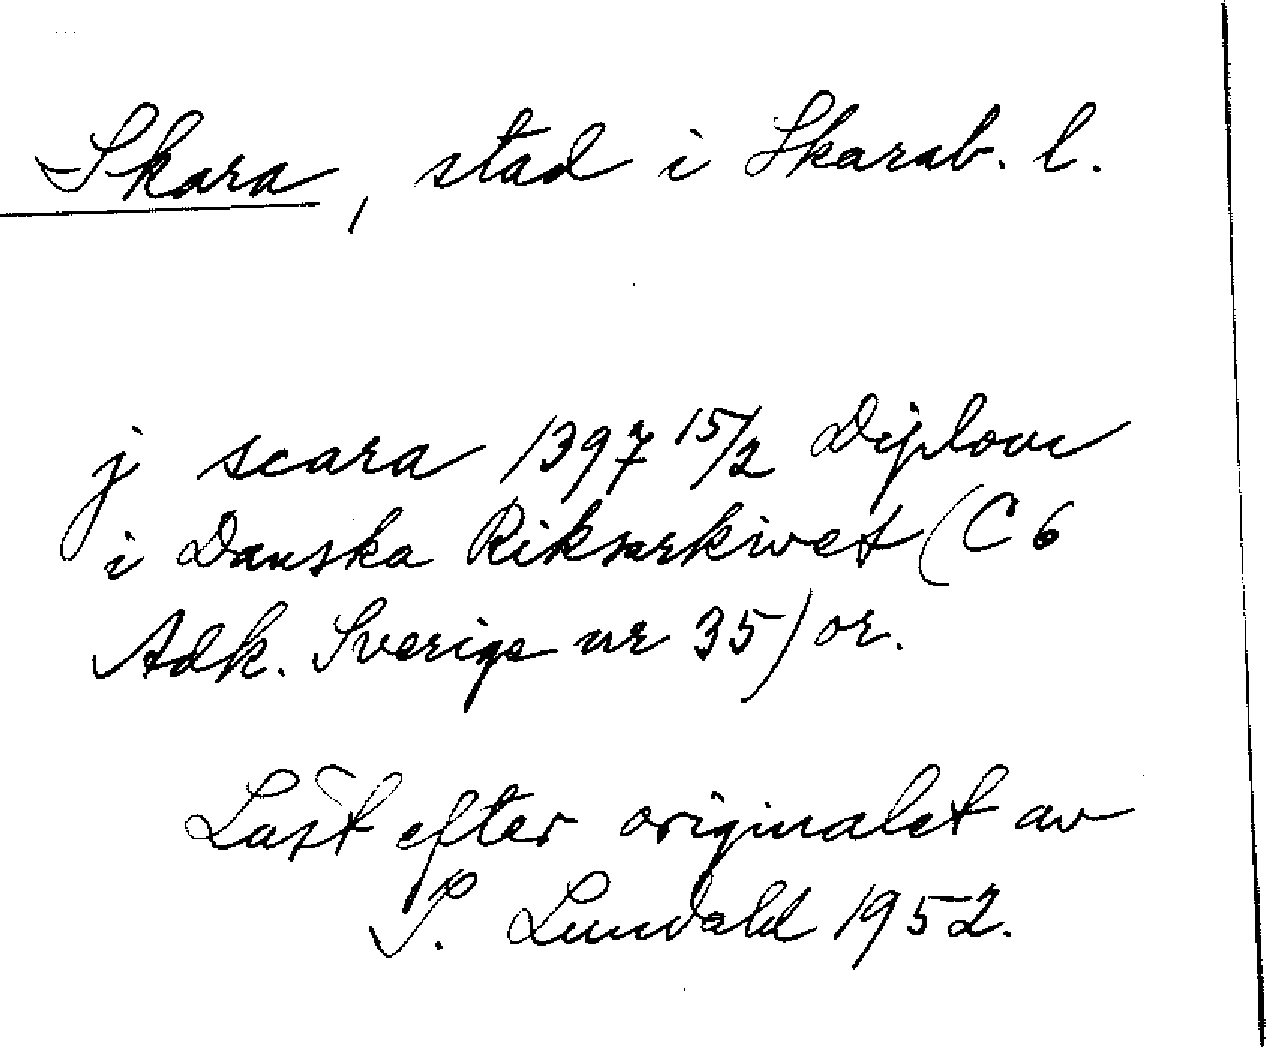 Skara, stad i Skarab. l.
j scara 1397 15/2 Diplom
i Danska Riksarkivet (C6
Adk. Sverige nr 35) or.
Läst efter originalet av
S. Lundald 1952.